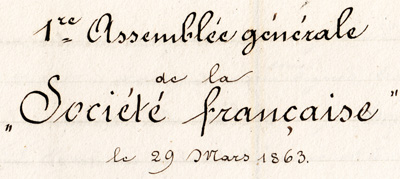 1re Assemblée générale
de la
„Société française"
le 29 Mars 1863.